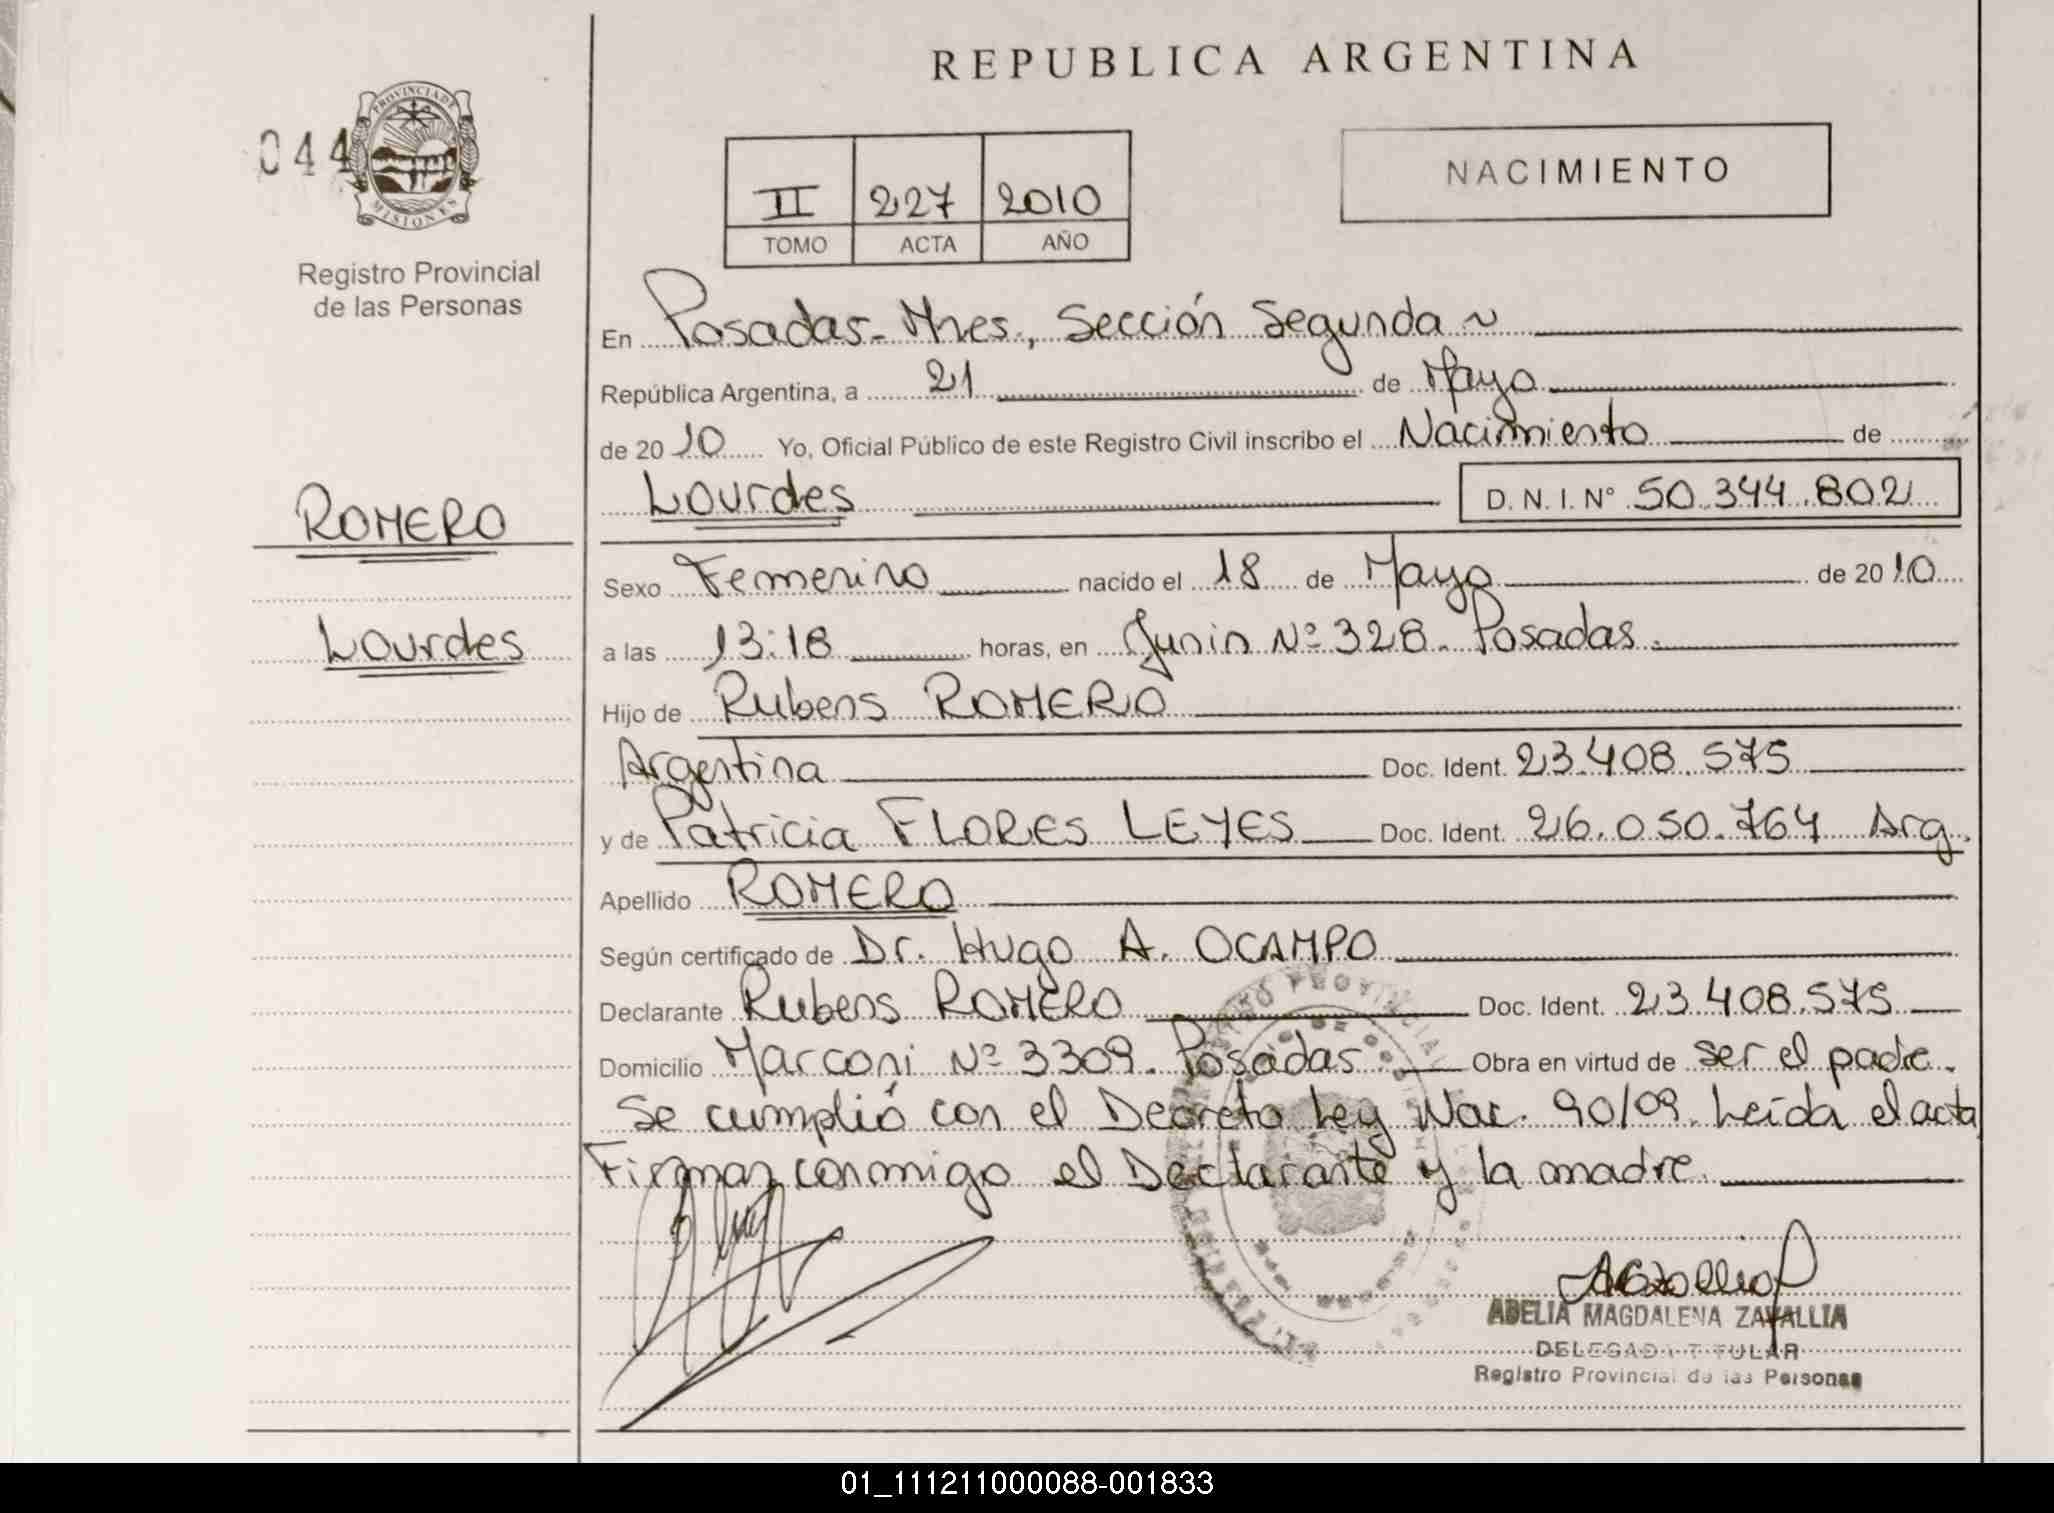 REPUBLICA ARGENTINA
044
PROVINCIA DE
MISIONES
Registro Provincial
de las Personas
II 227 2010
TOMO ACTA AÑO
NACIMIENTO
En Posadas- Mnes., Sección Segunda ~
República Argentina, a 21 de Mayo
de 2010 Yo, Oficial Público de este Registro Civil inscribo el Nacimiento de
Lourdes D. N. I. Nº 50.344.802
ROMERO
Lourdes
Sexo Femenino nacido el 18 de Mayo de 2010
a las 13:18 horas, en Junin Nº 328. Posadas.
Hijo de Rubens ROMERO
Argentina Doc. Ident. 23.408.575
y de Patricia FLORES LEYES Doc. Ident. 26.050.764 Arg.
Apellido ROMERO
Según certificado de Dr. Hugo A. OCAMPO
Declarante Rubens ROMERO Doc. Ident. 23.408.575
Domicilio Marconi Nº 3309. Posadas. Obra en virtud de ser el padre.
Se cumplió con el Decreto Ley Nac. 90/09. Leída el acta
Firman conmigo el Declarante y la madre.
ADELIA MAGDALENA ZAVALLIA
DELEGADA TITULAR
Registro Provincial de las Personas
01_111211000088-001833